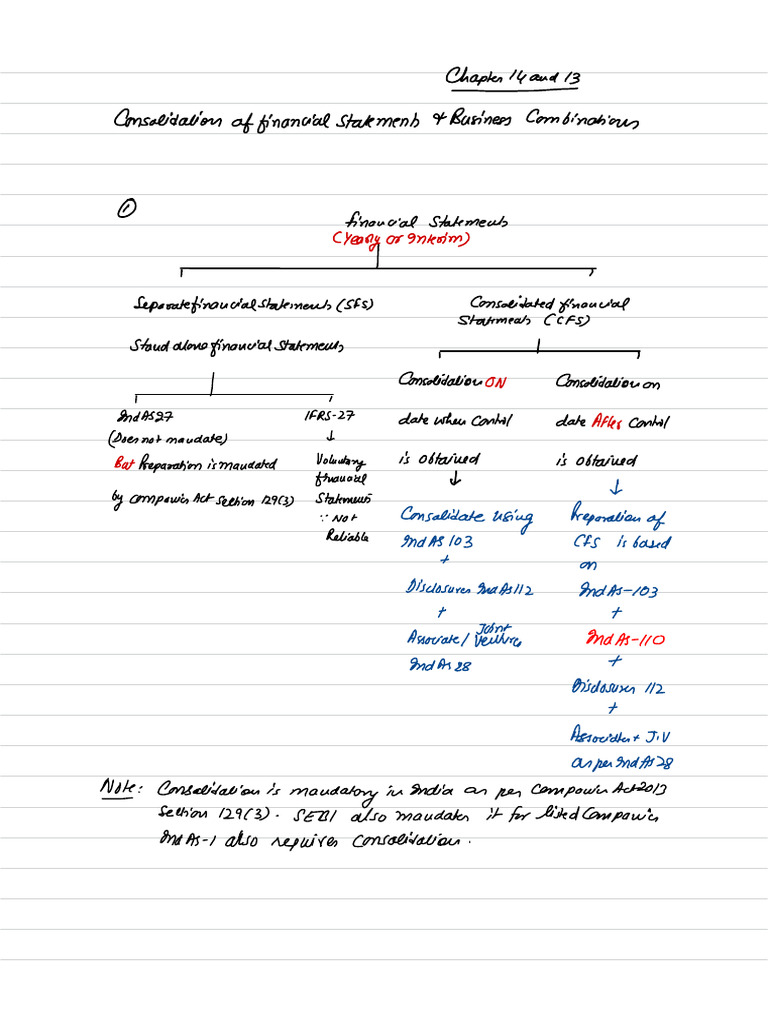 Chapter 14 and 13
Consolidation of financial Statements & Business Combinations
①
financial Statements
(Yearly or Interim)
Separate financial Statements (SFS)
Stand alone financial Statements
Ind AS 27
(Does not mandate)
But Preparation is mandated
by companies Act Section 129(3)
IFRS-27
↓
Voluntary
financial
Statements
∵ Not
Reliable
Consolidated financial
Statements (CFS)
Consolidation ON
date when Control
is obtained
↓
Consolidate using
Ind AS 103
+
Disclosures Ind AS 112
+
Associate / Joint Venture
Ind AS 28
Consolidation on
date After Control
is obtained
↓
Preparation of
CFS is based
on
Ind AS-103
+
Ind AS-110
+
Disclosures 112
+
Associates + J.V
as per Ind AS 28
Note: Consolidation is mandatory in India as per Companies Act 2013
Section 129(3). SEBI also mandates it for listed Companies
Ind AS-1 also requires Consolidation.